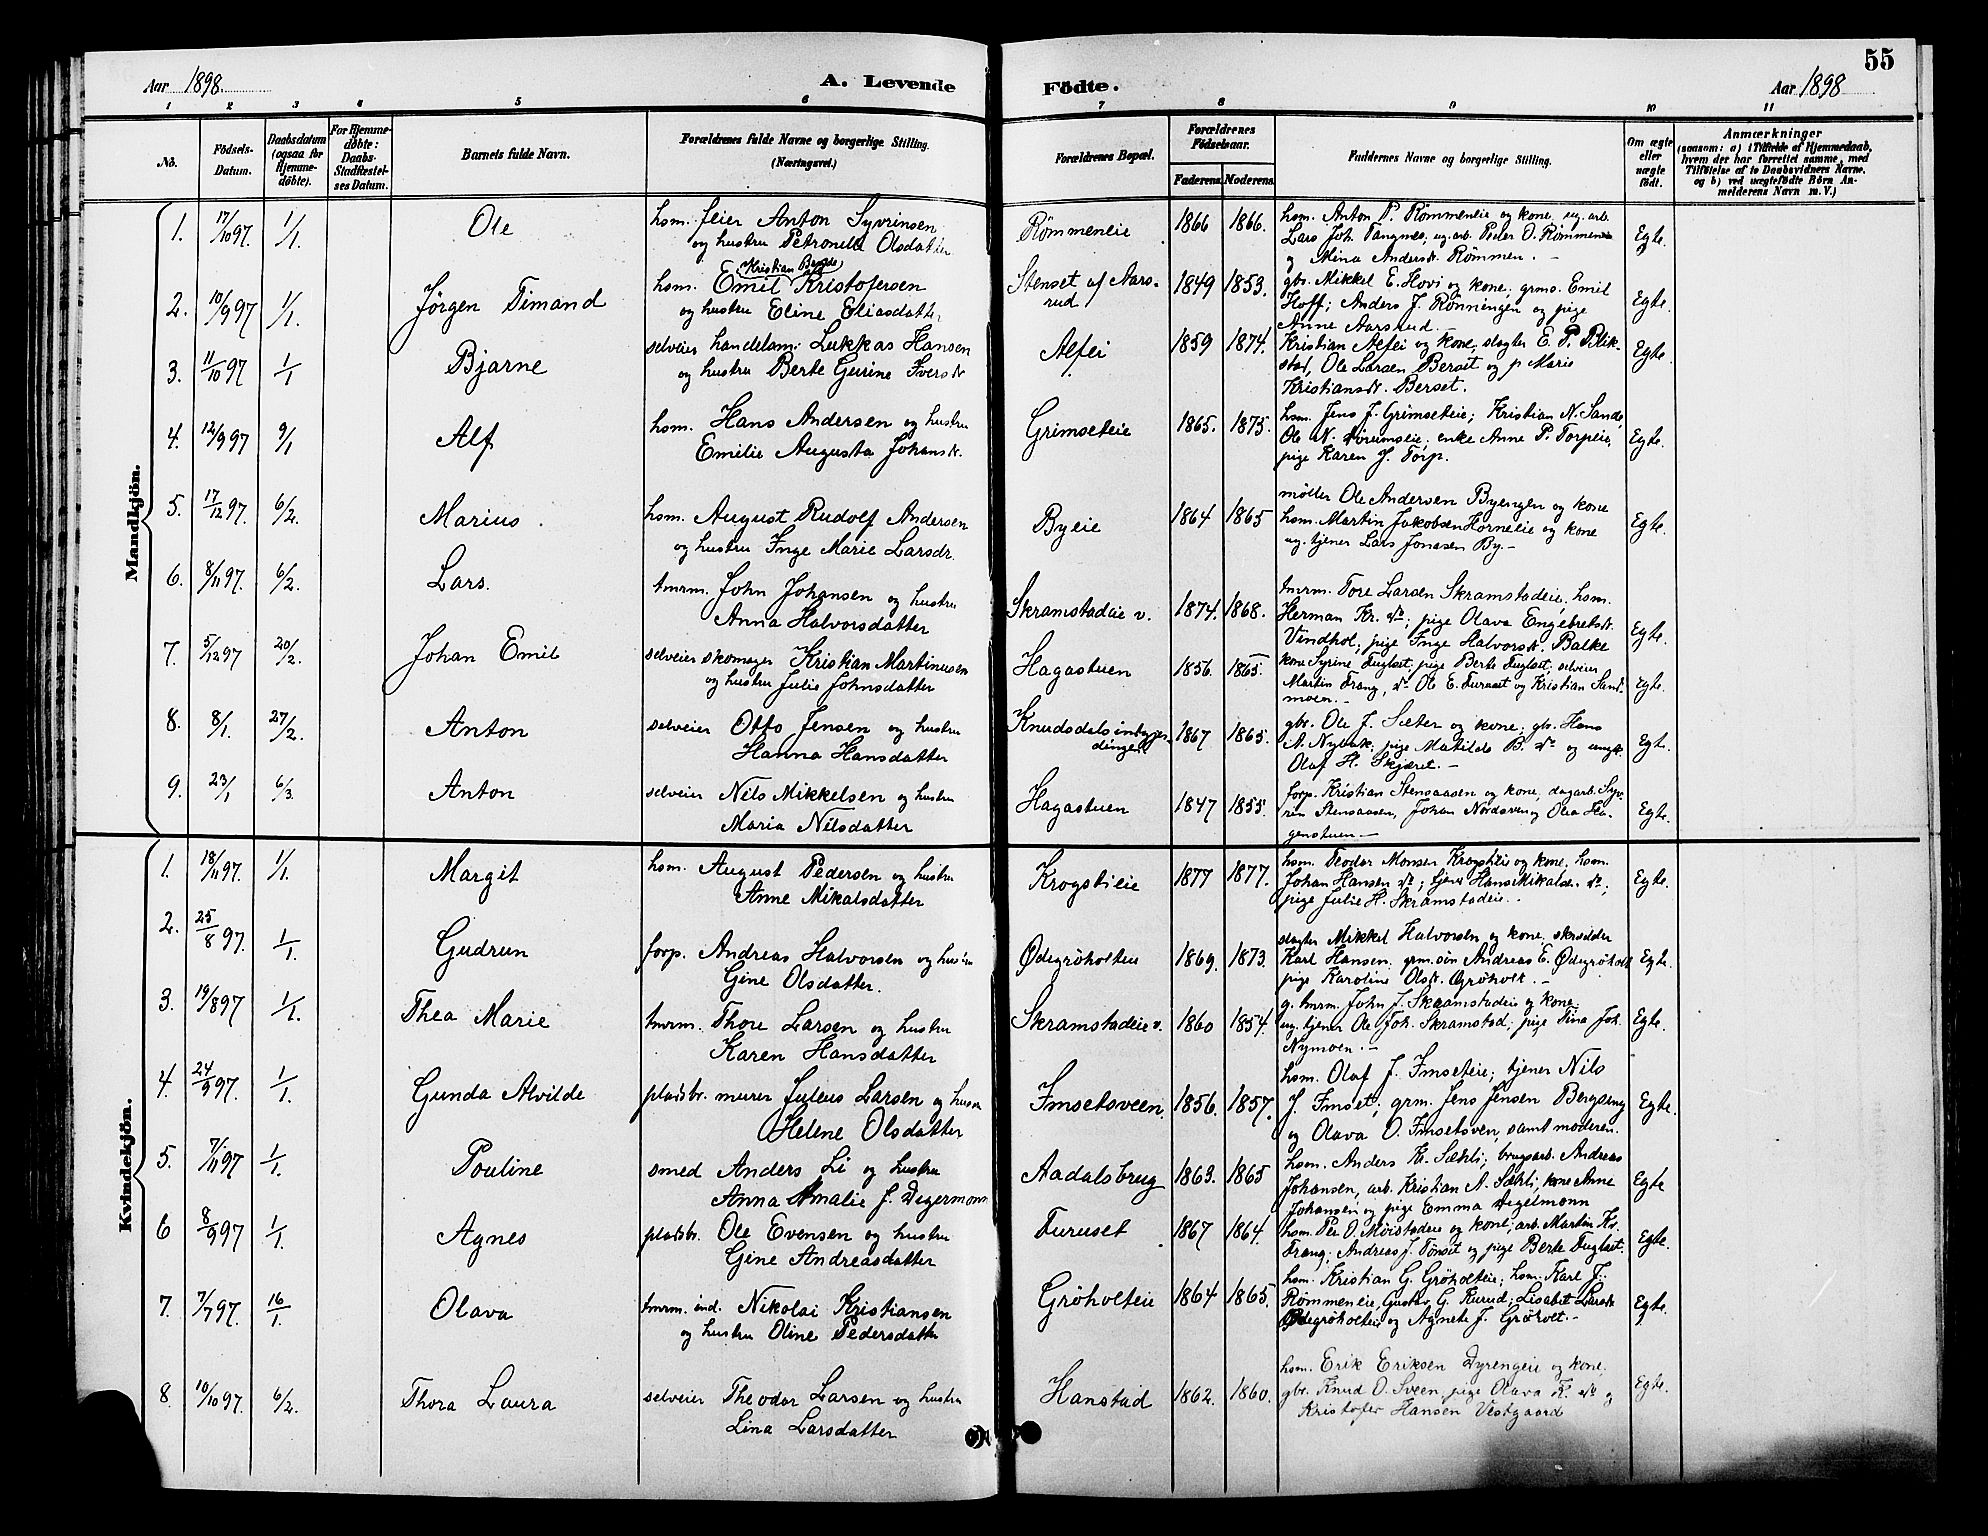 55
Aar 1898.
A. Levende
Födte.
Aar 1898
1 2 3 4 5 6 7 8 9 10 11
No.
Födsels-Datum.
Daabsdatum (ogsaa for Hjemme-döbte).
For Hjemme-döbte: Daabs-Stadfæstel-ses Datum.
Barnets fulde Navn.
Forældrenes fulde Navne og borgerlige Stilling. (Næringsvei.)
Forældrenes Bopæl.
Forældrenes Födselsaar.
Faderens.
Moderens.
Faddernes Navne og borgerlige Stilling.
Om ægte eller uægte födt.
Anmærkninger
(saasom: a) i Tilfælde af Hjemmedaab, hvem der har forrettet samme, med Tilföielse af to Daabsvidners Navne, og b) ved uægtefödte Börn An-melderens Navn m. V.)
Mandkjön.
1. 17/10 97. 1/1 Ole
hsm. feier Anton Syvrinsen
og hustru Petronella Olsdatter
Römmeneie 1866 1866.
hsm. Anton P. Römmeneie og kone, ug. arb.
Lars Joh. Tangnes, ug. arb. Peder O. Römmen
og Mina Andersd. Römmen. Egte.
2. 10/9 97 1/1. Jörgen Timand
Kristian Bernds
hsm. Emil Kristofersen
og hustru Eline Eliasdatter
Stenset af Aars-
rud 1849 1853.
gbr. Mikkel E. Hovi og kone, grms. Emil
Hoff; Anders J. Rönningen og pige
Anne Aarsrud. Egte.
3. 11/10 97 1/1 Bjarne
selveier handelsm. Lukkas Hansen
og hustru Berte Gurine Iversd.
Alfei 1859 1874.
Kristian Alfei og kone, slagter E. P. Blik-
stad, Ole Larsen Berset og p. Marie
Kristiansd. Berset. Egte.
4. 12/9 97 9/1 Alf
hsm. Hans Andersen og hustru
Emilie Augusta Johansd.
Grimseteie 1865. 1875.
hsm. Jens J. Grimseteie; Kristian N. Sande,
Ole N. enke Anne P. Torpeie,
pige Karen J. Torp. Egte.
5. 17/12 97. 6/2. Marius.
hsm. August Rudolf Andersen
og hustru Inge Marie Larsdr.
Byeie 1864 1865
møller Ole Andersen Byengen og kone
hsm. Martin Jakobsen Horneie og kone
ug. tjener Lars Jonasen By. Egte.
6. 8/11 97. 6/2. Lars.
tmrm. John Johansen og hustru
Anna Halvorsdatter
Skramstadeie v. 1874. 1868.
tmrm. Tore Larsen Skramstadeie, hsm.
Herman Kr. do; pige Olava Engebretsd.
Vindhol, pige Inge Halvorsd. Balke Egte.
7. 5/12 97 20/2. Johan Emil
selveier skomager Kristian Martinusen
og hustru Julie Johnsdatter
Hagastuen 1856. 1865.
kone Syrine Fuglset, pige Berte Fuglset, selveier
Martin Frang, do Ole E. Furuset og Kristian Sand-
moen. Egte.
8. 8/1. 27/2. Anton
selveier Otto Jensen og hustru
Hanna Hansdatter
Knudsdals 1867 1865.
gbr. Ole J. Sæter og kone, gbr. Hans
A. Nybak, pige Matilde B. do og ungk.
Olaf H. Skjæret. Egte.
9. 23/1 6/3. Anton
selveier Nils Mikkelsen og hustru
Maria Nilsdatter
Hagastuen 1847 1855.
forp. Kristian Stensaasen og kone, dagarb. Syv-
rin Stensaasen, Johan Nordsveen og Olea Ha-
genstuen Egte.
Kvindekjön.
1. 18/11 97. 1/1. Margit
hsm. August Pedersen og hustru
Anne Mikalsdatter
Krogstieie 1877 1877.
hsm. Teodor Monsen Krogstieie og kone, hsm.
Johan Hansen do; tjener Hans Mikalsen do;
pige Julie H. Skramstadeie. Egte.
2. 25/8 97. 1/1. Gudrun
forp. Andreas Halvorsen og hustru
Gine Olsdatter.
Ødegröholteie 1869. 1873.
slagter Mikkel Halvorsen og kone, skrædder
Karl Hansen, grm. sön Andreas E. Ødegröholt
pige Karoline Olsd. Gröholt. Egte.
3. 19/8 97 1/1. Thea Marie
tmrm. Thore Larsen og hustru
Karen Hansdatter
Skramstadeie v. 1860 1854.
g. tmrm. John J. Skramstadeie og kone,
ug. tjener Ole Joh. Skramstad; pige Tina Joh.
Nymoen. Egte.
4. 24/9 97. 1/1. Gunda Alvilde
pladsbr. murer Julius Larsen og hustru
Helene Olsdatter
Imsetsveen. 1856. 1857.
hsm. Olaf J. Imseteie; tjener Nils
J. Imset; grm. Jens Jensen Bergseng
og Olava O. Imsetsven, samt moderen. Egte.
5. 7/11 97 1/1. Pouline
smed Anders Li og hustru
Anna Amalie J. Degermann
Aadalsbrug 1863. 1865
hsm. Anders Kr. Sæhli; brugsarb. Andreas
Johansen, arb. Kristian A. Sæhli, kone Anne
Johansen og pige Emma Degelmann Egte
6 8/9 97 1/1. Agnes
pladsbr. Ole Evensen og hustru
Gine Andreasdatter
Furuset 1867 1864.
hsm. Per O. Moistadeie og kone; arb. Martin Kr.
Frang; Andreas J. Tönset og pige Berte Fuglset. Egte.
7. 7/7 97. 16/1. Olava
tmrm. ind. Nikolai Kristiansen
og hustru Oline Pedersdatter
Gröholteie 1864 1865.
hsm. Kristian G. Gröholteie; hsm. Karl J.
Römmeneie, Gustav G. Rurud; Lisabet Larsd.
Ødegröholteie og Agnete J. Gröholt. Egte.
8. 10/10 97. 6/2. Thora Laura
selveier Theodor Larsen og hustru
Lina Larsdatter
Hanstad 1862. 1860.
hsm. Erik Eriksen Dyrengeie og kone,
gbr. Knud O. Sveen, pige Olava K. do og
Kristofer Hansen Vestgaard Egte.